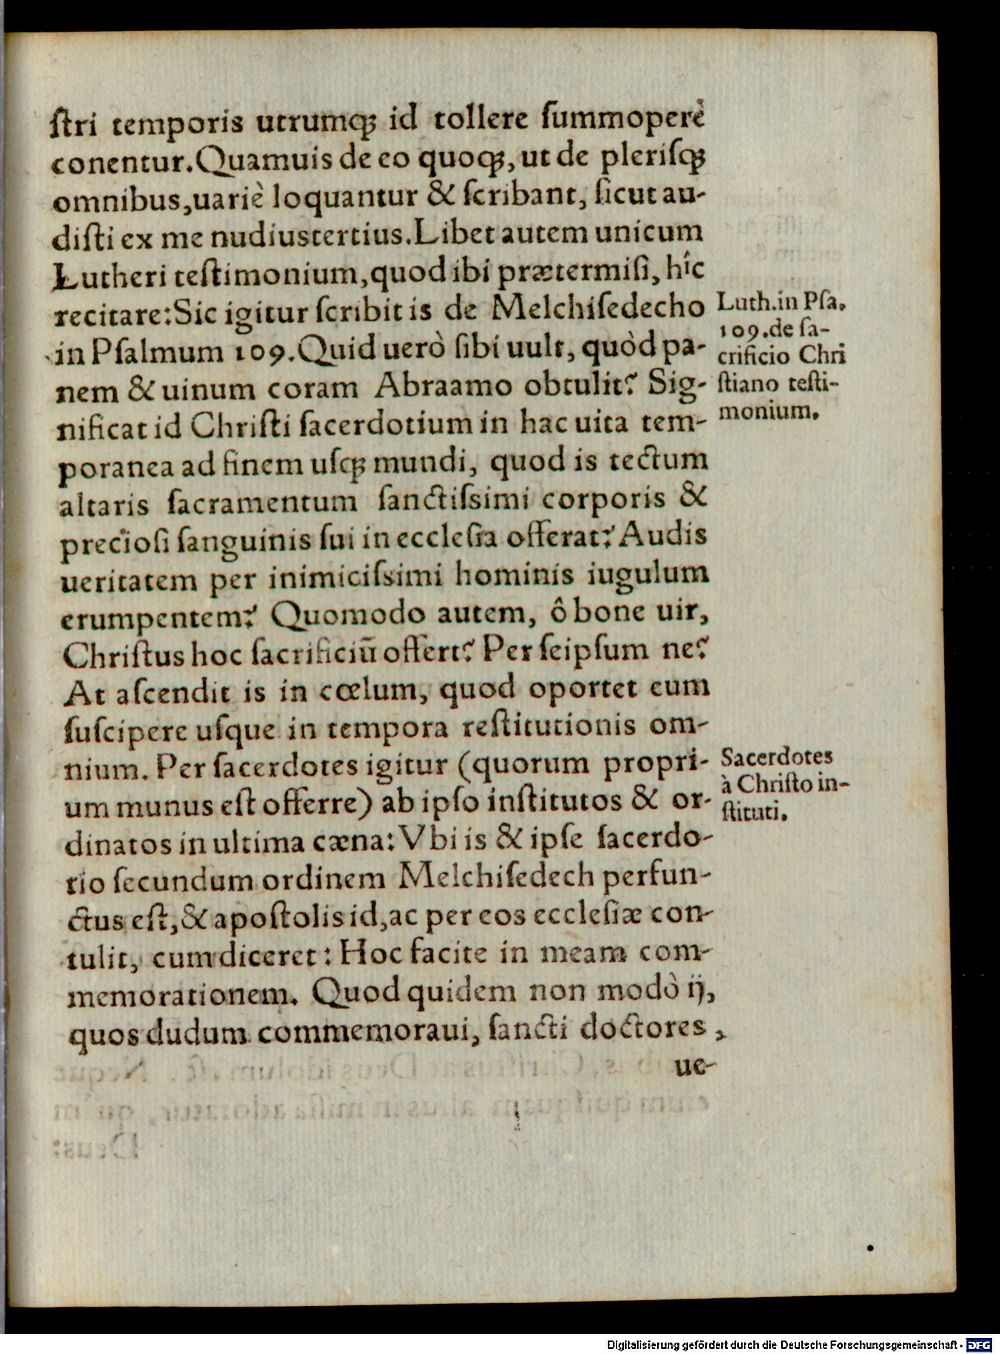 ſtri temporis utrumqꝫ id tollere ſummoperè
conentur. Quamuis de eo quoqꝫ, ut de pleriſqꝫ
omnibus, uariè loquantur & ſcribant, ſicut au-
diſti ex me nudiustertius. Libet autem unicum
Lutheri teſtimonium, quod ibi prætermiſi, hîc
recitare: Sic igitur ſcribit is de Melchiſedecho
in Pſalmum 109. Quid uerò ſibi uult, quòd pa-
nem & uinum coram Abraamo obtulit? Sig-
nificat id Chriſti ſacerdotium in hac uita tem-
poranea ad finem uſqꝫ mundi, quod is tectum
altaris ſacramentum ſanctiſsimi corporis &
precioſi ſanguinis ſui in eccleſia offerat? Audis
ueritatem per inimiciſsimi hominis iugulum
erumpentem? Quomodo autem, ô bone uir,
Chriſtus hoc ſacrificiũ offert? Per ſeipſum ne?
At aſcendit is in cœlum, quod oportet eum
ſuſcipere uſque in tempora reſtitutionis om-
nium. Per ſacerdotes igitur (quorum propri-
um munus eſt offerre) ab ipſo inſtitutos & or-
dinatos in ultima cæna: Vbi is & ipſe ſacerdo-
tio ſecundum ordinem Melchiſedech perfun-
ctus eſt, & apoſtolis id, ac per eos eccleſiæ con-
tulit, cum diceret: Hoc facite in meam com-
memorationem. Quod quidem non modò ij,
quos dudum commemoraui, ſancti doctores,
ue-
Luth. in Pſa.
109. de ſa-
crificio Chri
ſtiano teſti-
monium.
Sacerdotes
à Chriſto in-
ſtituti.
Digitalisierung gefördert durch die Deutsche Forschungsgemeinschaft - DFG